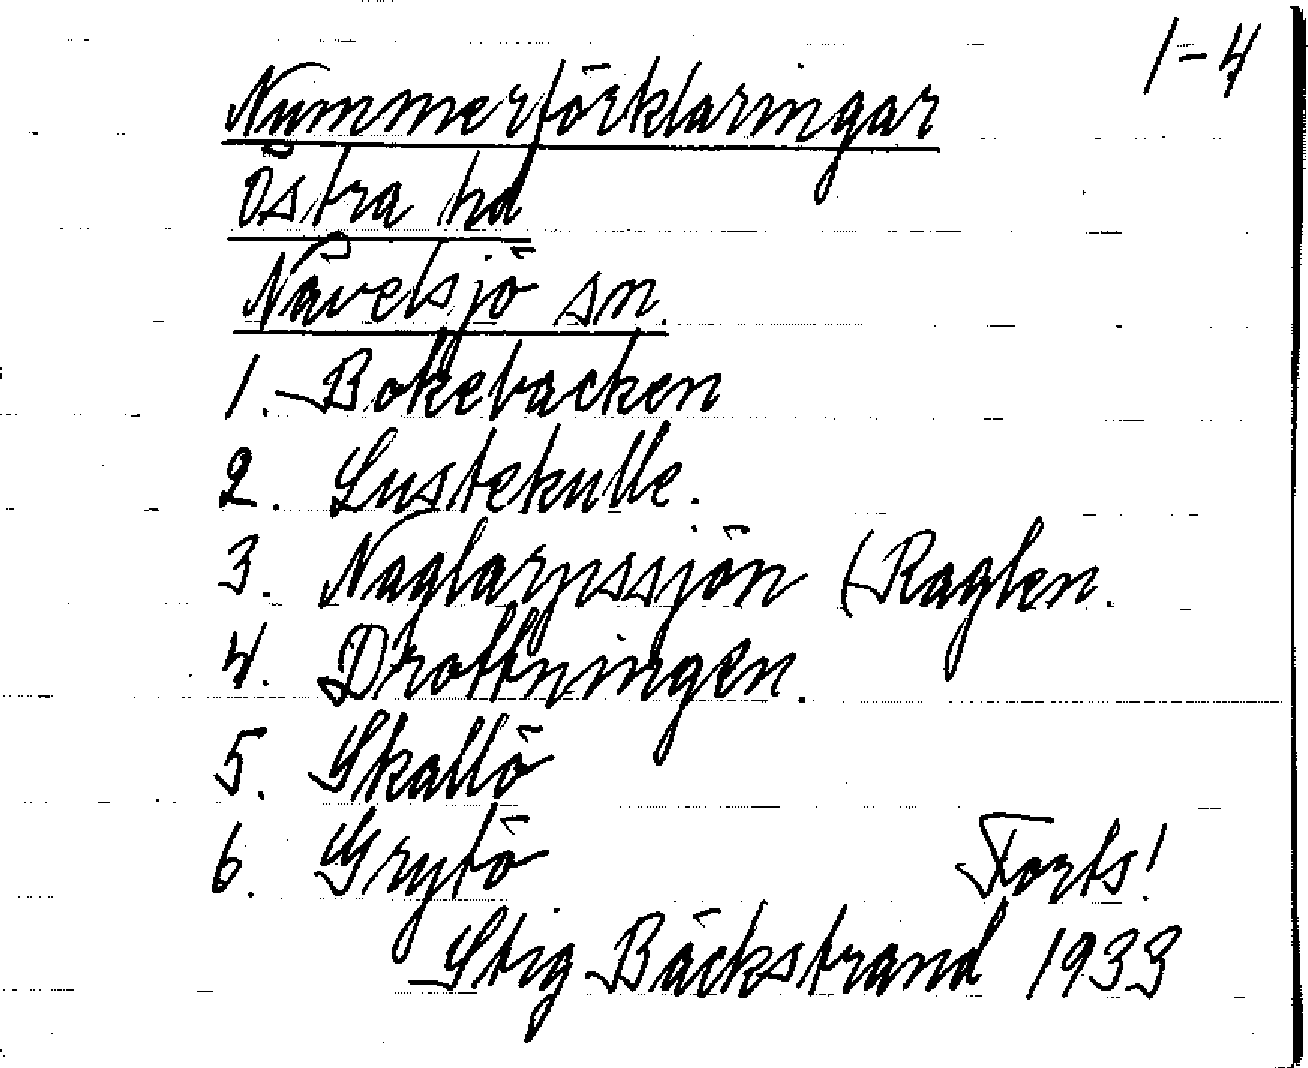 1-4
Nummerförklaringar
Östra hd
Nävelsjö sn.
1. Bokebacken
2. Lustekulle.
3. Naglarpssjön (Raglen.
4. Drottningen.
5. Skallö
6. Grytö
Forts!
Stig Bäckstrand 1933